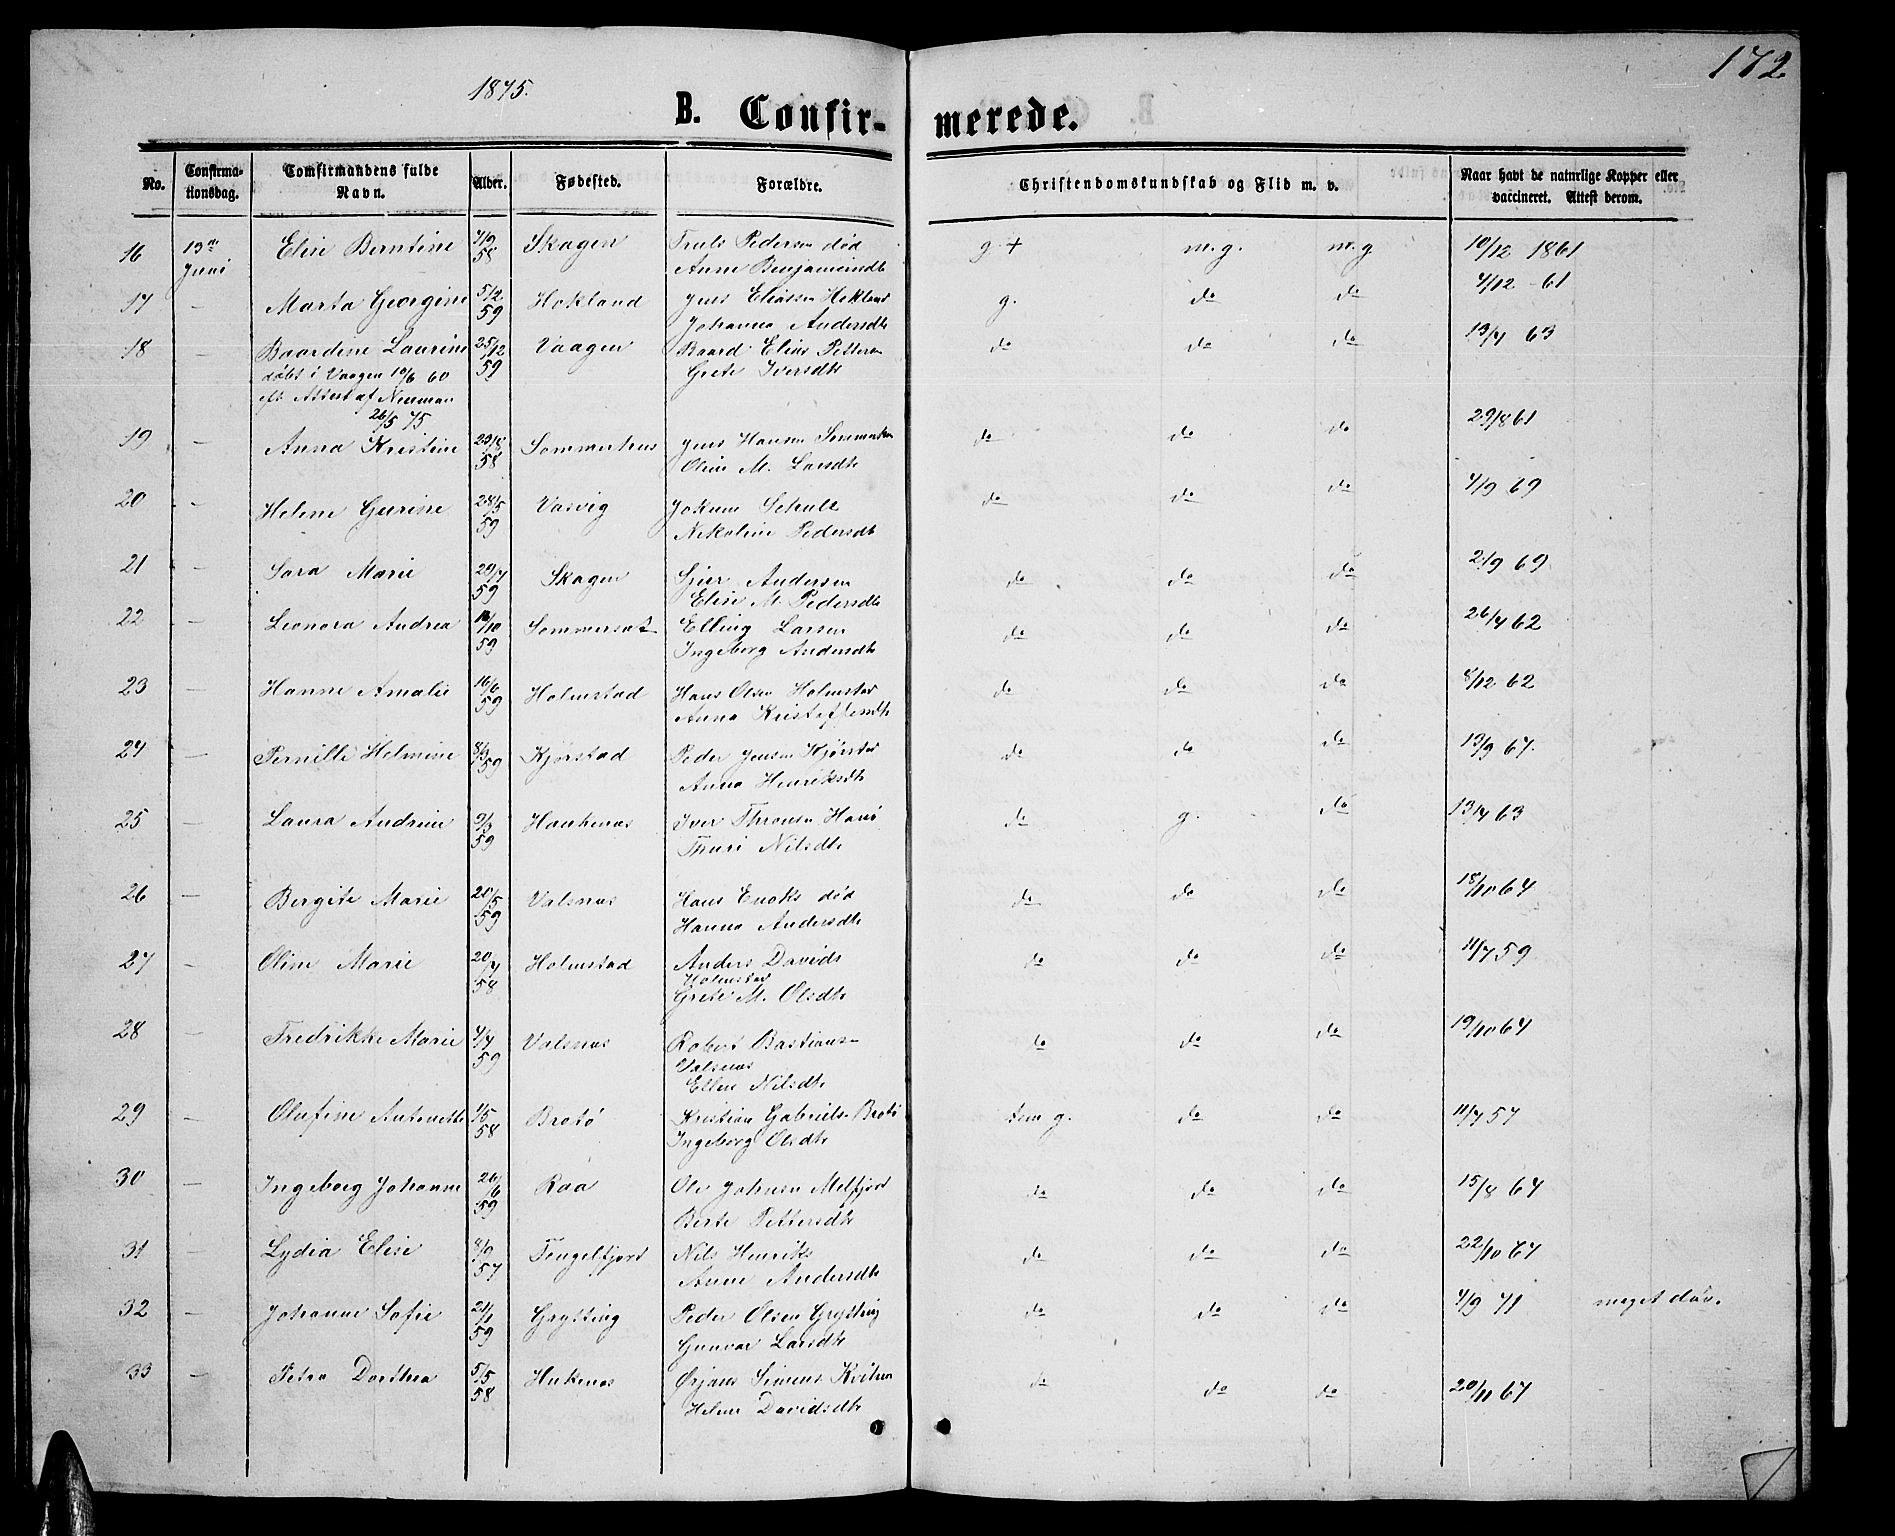 172
1875.
B. Confir- merede.
No. Confirma- Comfirmandens fulde Alder. Fødested. Forældre. Christendomskundskab og Flid m. v. Naar havt de naturlige Kopper eller
tionsdag. Navn. vaccineret. Attest derom.
16 13de Elise Berntine 7/9 Skagen Truls Pedersen død g + m.g. m.g 10/12 1861
Juni 58 Anne Benjamindt
17 - Marta Georgine 5/12 Hokland Jens Eliassen Hokland g. do do 4/12 61
59 Johanna Andersdt
18 - Baardine Laurine 25/12 Vaagen Baard Elias Pettersen do do do 13/7 63
døbt i Vaagen 10/6 60 59 Grete Iversdt
eft Attest af Neuman
26/5 75
19 - Anna Kristine 23/8 Sommerhus Jens Hansen do do do 29/8 61
58 Oline M. Larsdt
20 - Helene Gurine 28/5 Vasvig Johan Schult do do do 4/9 69
59 Nikoline Pedersdt
21 - Sara Marie 29/7 Skagen Sjur Andersen do do do 2/9 69
59 Elise M. Pedersdt
22 - Leonora Andrea /10 Sommersæt Elling Larsen do do do 26/7 62
59 Ingeborg Andersdt
23 - Hanne Amalie 16/6 Holmstad Hans Olsen Holmstad do do do 8/12 62
59 Anna Kristoffersdt
24 - Pernille Helmine 8/3 Kjørstad Peder Jensen Kjørstad do do do 13/9 67.
59 Anna Henriksdt
25 - Laura Andrine 9/3 Haukenæs Iver Thronsen do g. do 13/7 63
59 Thuri Nilsdt
26 - Bergite Marie 28/5 Valsnæs Hans Enoks død do do do 18/10 64
59 Hanna Andersdt
27 - Oline Marie 20/7 Holmstad Anders Davids do do do 11/7 59
58 Holmstad
Grete M. Olsdt
28 - Fredrikke Marie 4/7 Valsnæs Robert Bastians do do do 19/10 64
59 Valsnæs
Ellen Nilsdt
29 - Olufine Antonette 1/5 Brotø Kristian Gabriels. Brotø tem g. do do 11/7 57
58 Ingeborg Olsdt
30 - Ingeborg Johanne 26/6 Raa Ole Johnsen Melfjord do do do 15/8 64
59 Berte Pettersdt
31 - Lydia Elise 8/9 Tengelfjord Nils Henriks do do do 22/10 67
57 Anne Andersdt
32 - Johanne Sofie 21/1 Grytting Peder Olsen Grytting do do do 4/9 71 meget døv.
59 Gunvor Larsdt
33 - Petra Dorthea 5/5 Hukenæs Ørjans Simens do do do 20/11 67
58 Helene Davidsdt